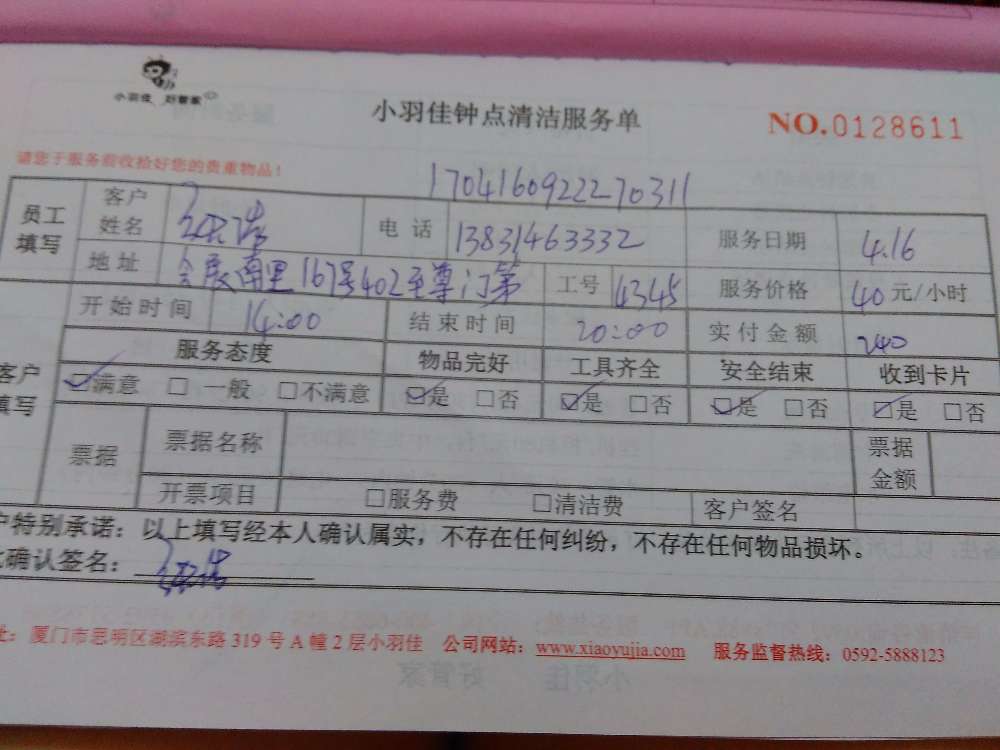 小羽佳 好管家
小羽佳钟点清洁服务单
NO.0128611
请您于服务前收拾好您的贵重物品!
17041609222270311
员工填写 客户姓名 电话 13831463332 服务日期 4.16
地址 会展南里167号402至尊门第 工号 4345 服务价格 40元/小时
开始时间 14:00 结束时间 20:00 实付金额 240
客户填写 服务态度 物品完好 工具齐全 安全结束 收到卡片
☑满意 □一般 □不满意 ☑是 □否 ☑是 □否 ☑是 □否 ☑是 □否
票据 票据名称 票据金额
开票项目 □服务费 □清洁费 客户签名
户特别承诺：以上填写经本人确认属实，不存在任何纠纷，不存在任何物品损坏。
确认签名：
址：厦门市思明区湖滨东路319号A幢2层小羽佳 公司网站：www.xiaoyujia.com 服务监督热线：0592-5888123